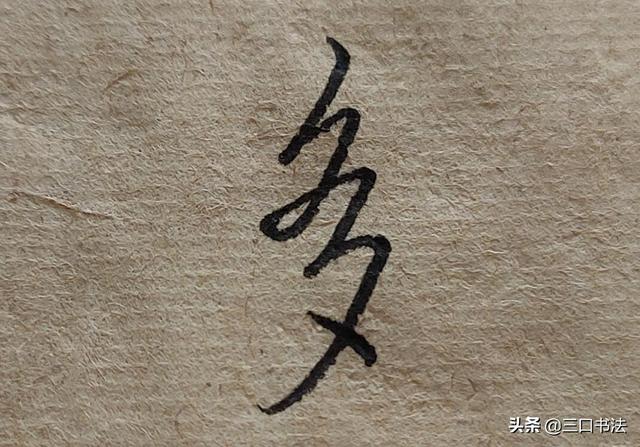 多
头条 @三口书法